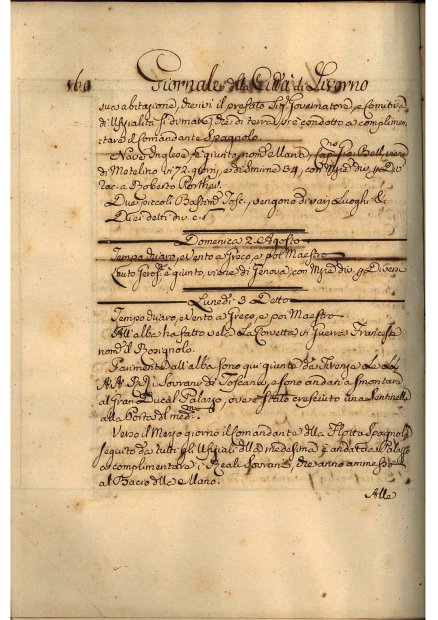 160 Giornale della Città di Livorno
sua abitazione, d'ivi il prefato Sig. Governatore, e comitiva
di Ufizialità sì di mare, che di terra, condotto a complimen
tare il Comandante Spagnolo.
Nave Inglese è giunta, nom.
di Metelino in 72 giorni, e di Smirne 34, con
a Roberto Porther
Due piccoli Bastim. Tosc. vengono di varj Luoghi
Domenica 2. Agosto
Tempo chiaro, e Vento a Greco, e poi Maestro
è giunto, viene di Genova, con
Lunedì 3 Detto
Tempo chiaro, e Vento a Greco, e poi Maestro
All'alba ha fatto vela la Corvetta di Guerra Francese
nom. il Rosignolo.
Parimente all'alba sono qui giunte da Firenze Le LL.
AA. RR. i Sovrani di Toscana, e sono andati a smontare
al Gran Ducal Palazzo, ove è stato cresciuto una Sentinella
alla Porta di med.mo
Verso il Mezzo giorno il Comandante della Flotta Spagnola
seguito da tutti gli Ufiziali della medesima è andato a Palazzo
a complimentare i Reali Sovrani, che anno ammesso
al Bacio della Mano.
Alle